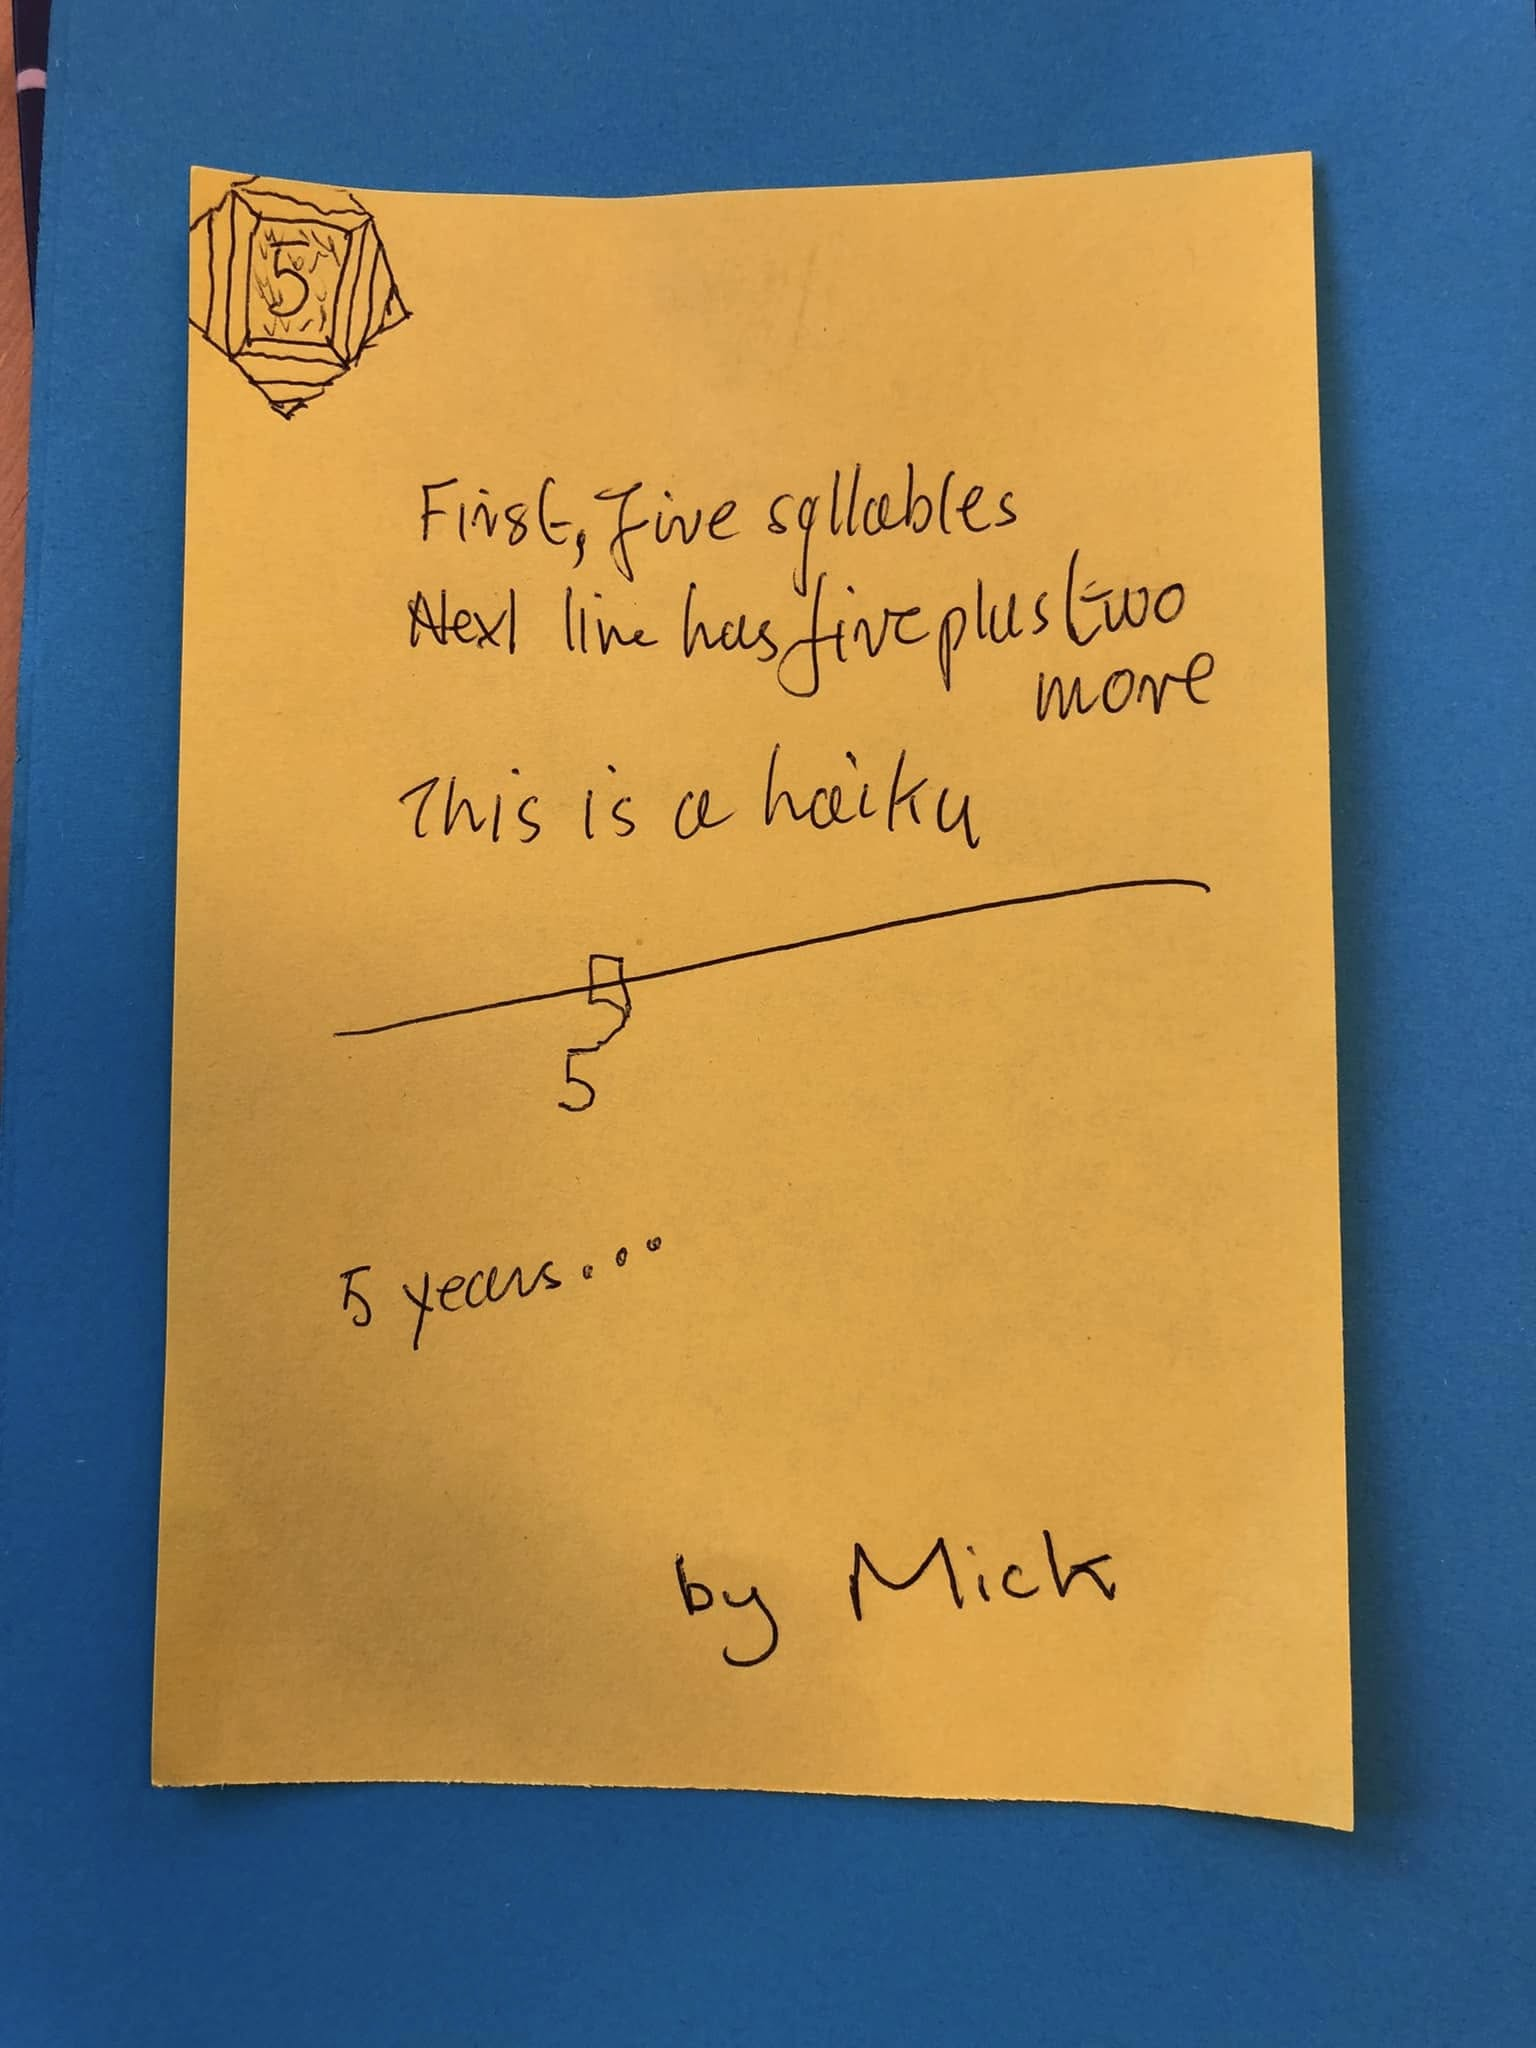 5
First, five syllables
Next line has five plus two
more
This is a haiku
5
5 years...
by Mick